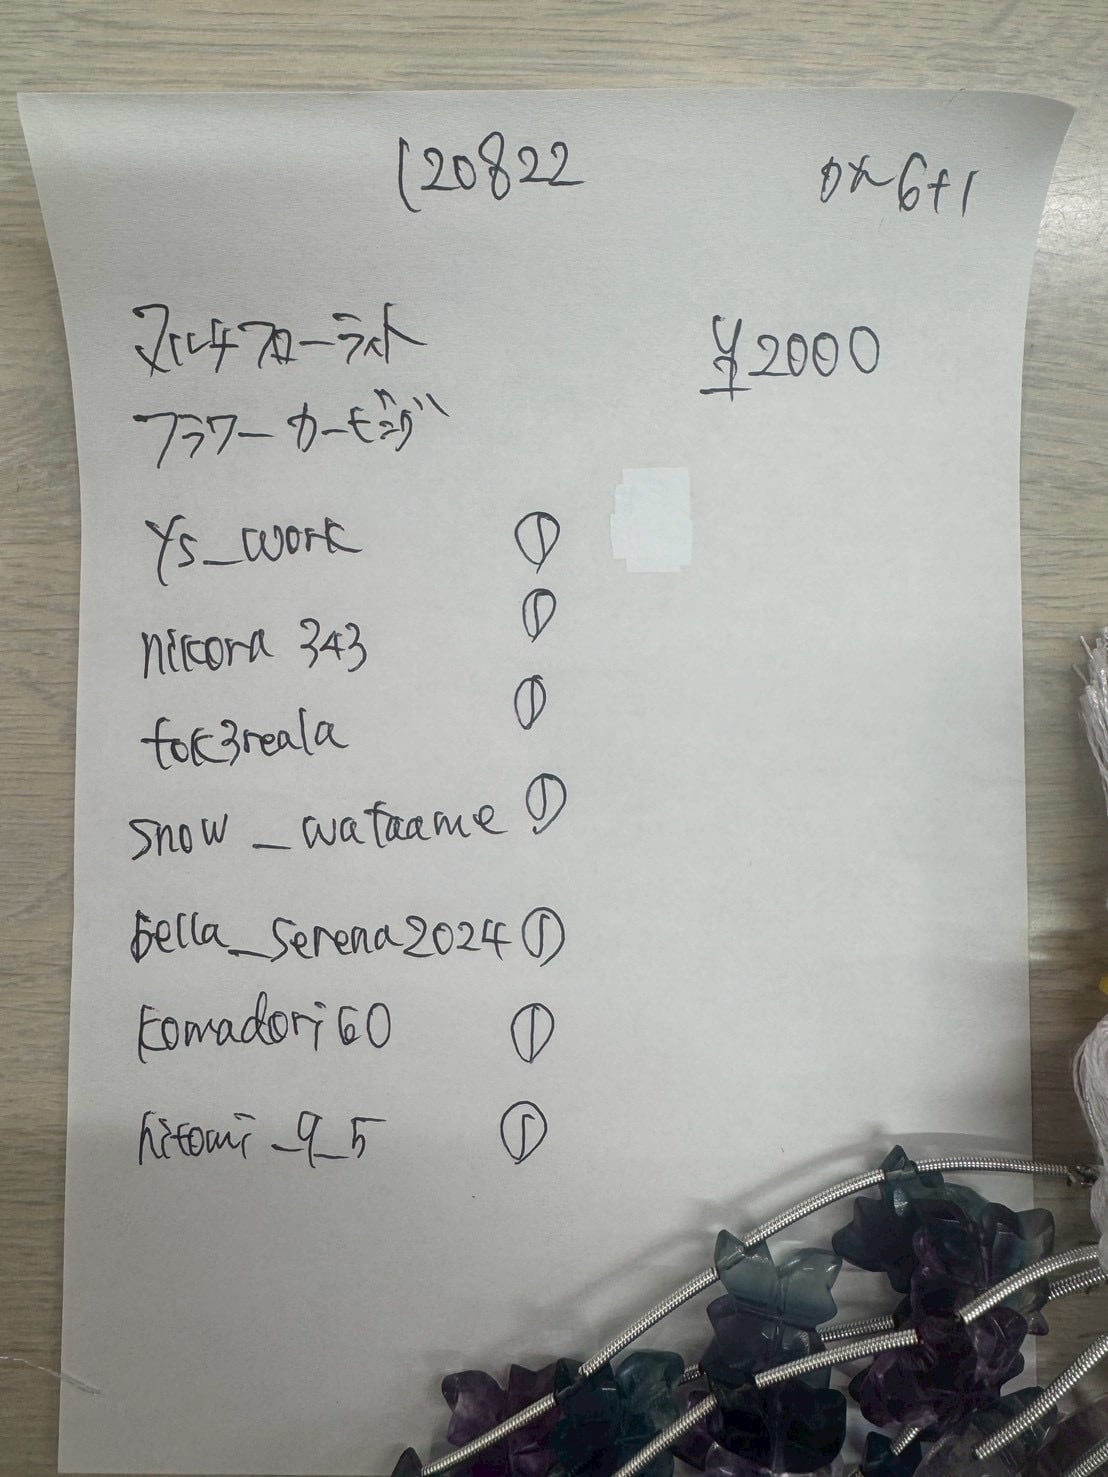 120822
6+1
マルチフローライト
¥2000
フラワーカービング
ys_work ①
nikora 343 ①
tok3reala ①
snow_wataame ①
bella_serena2024 ①
komadori60 ①
hitomi_9_5 ①